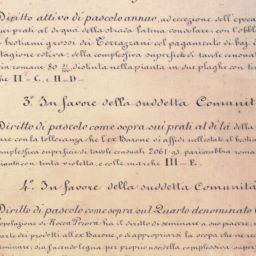 Diritto attivo di pascolo annuo, ad eccezione dell'epoca
sui prati al di qua della strada latina consolare, con l'obbl
a bestiami grossi dei Terrazzani col pagamento di baj.
stagione estiva; della complessiva superficie di tavole censuali
romane 80 distinta nella pianta in due plaghe con tin
che II=C. e II=D=
3.° In favore della suddetta Comunità
Diritto di pascolo come sopra sui prati al di là della
con la tolleranza che l'ex Barone vi affidi nell'estate il bestia
complessiva superficie di tavole censuali 2061 as. pari a rubbia roma
pianta con tinta violetta, e colle marche III=E.
4.° In favore della suddetta Comunità
Diritto di pascolo come sopra sul Quarto denominato
popolazione di Rocca Priora ha il diritto di seminare a suo piacere,
parte dei prodotti all'ex Barone, e di appropriarsi la scopa che ne re
seminare; sia facendo legna per proprio uso della complessiva super